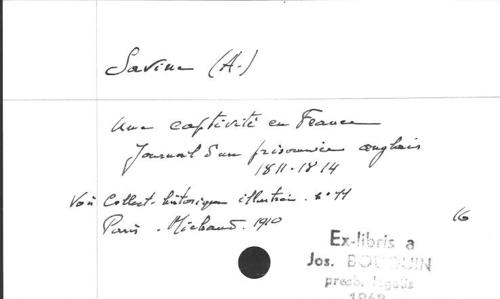 Savine (A.)
Une captivité en France
Journal d'un prisonnier anglais
1811-1814
Voir Collect. historique illustrée. n° 11
Paris. Michaud. 1910
16
Ex-libris a
Jos. BOUDUIN
presb. legatis
1968